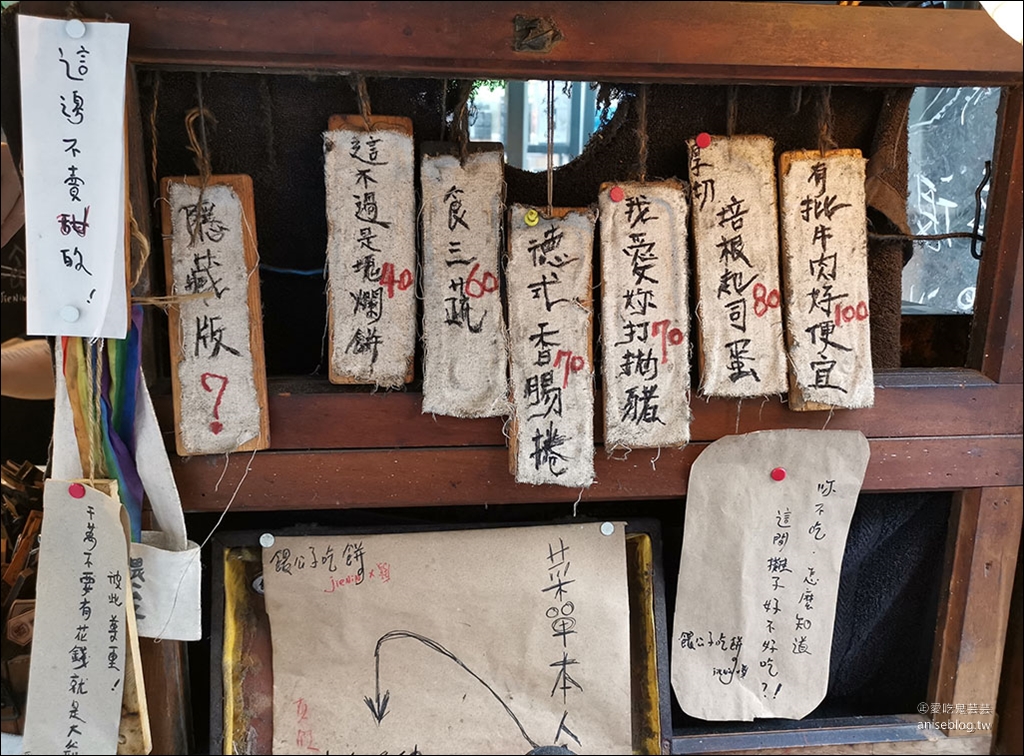 這邊不賣甜的！
隱藏版？
這不過是塊爛餅 40
食三蔬 60
德式香腸捲 70
我愛妳打拋豬 70
厚切
培根起司蛋 80
有批牛肉好便宜 100
千萬不要有花錢就是大
彼此尊重！
餵公子吃餅
菜單本人
你不吃．怎麼知道
這間攤子好不好吃？！
餵公子吃餅
愛吃鬼芸芸
aniseblog.tw